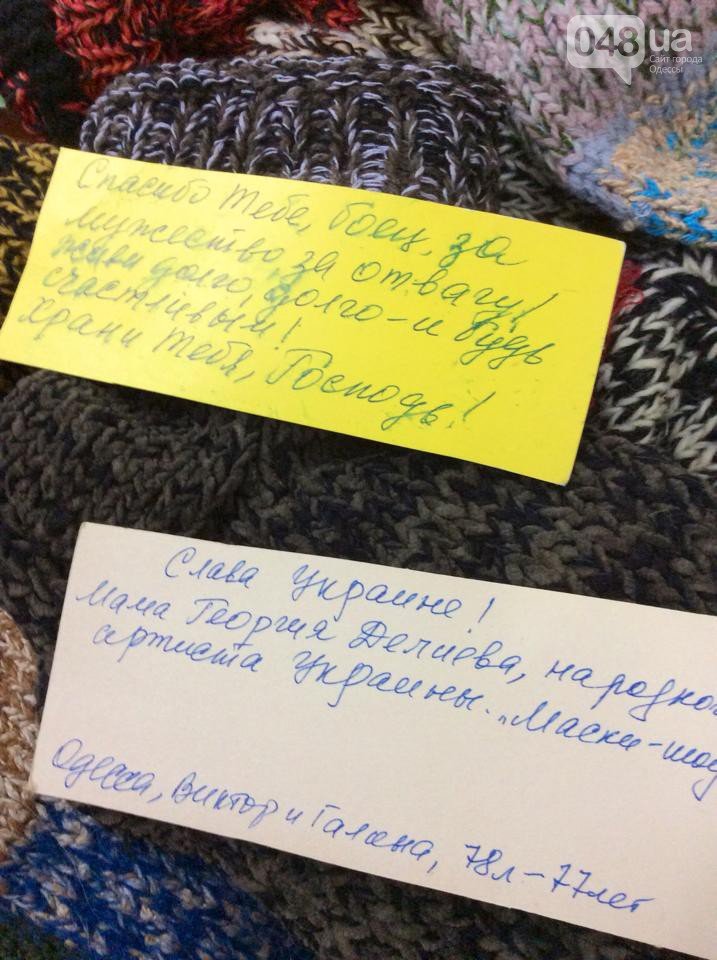 048.ua
Сайт города
Одессы
Спасибо тебе, боец, за
мужество, за отвагу!
живи долго, долго - и будь
счастливым!
храни тебя, Господь!
Слава Украине!
Мама Георгия Делиева, народно
артиста Украины. „Маски-шоу
Одесса, Виктор и Галина, 78л-77лет